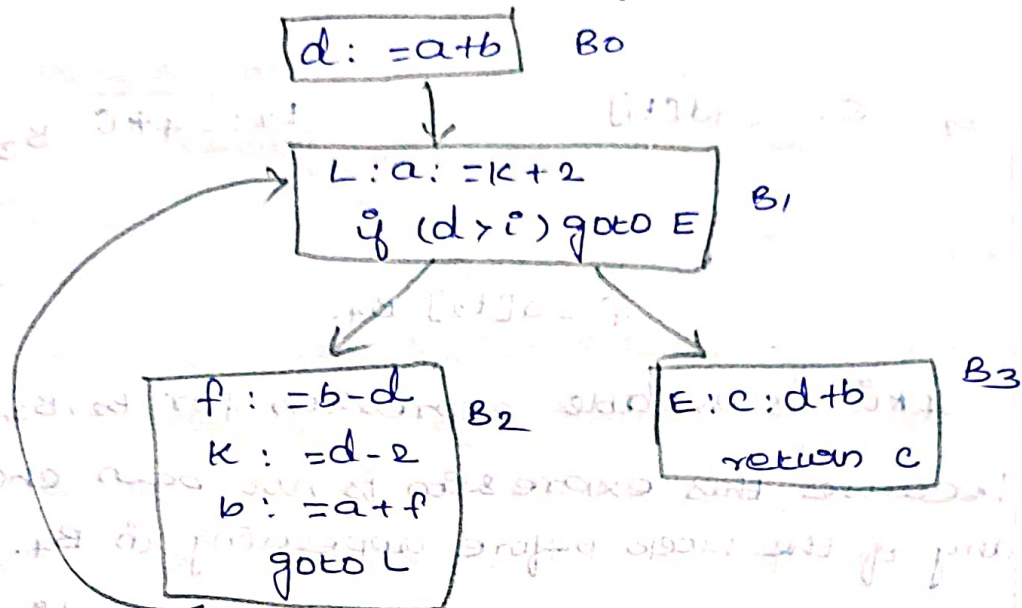 d : = a+b B0
L : a : = K + 2
if (d > i) goto E B1
f : = b-d B2
K : = d-2
b : = a + f
goto L
E : C : d+b B3
return c